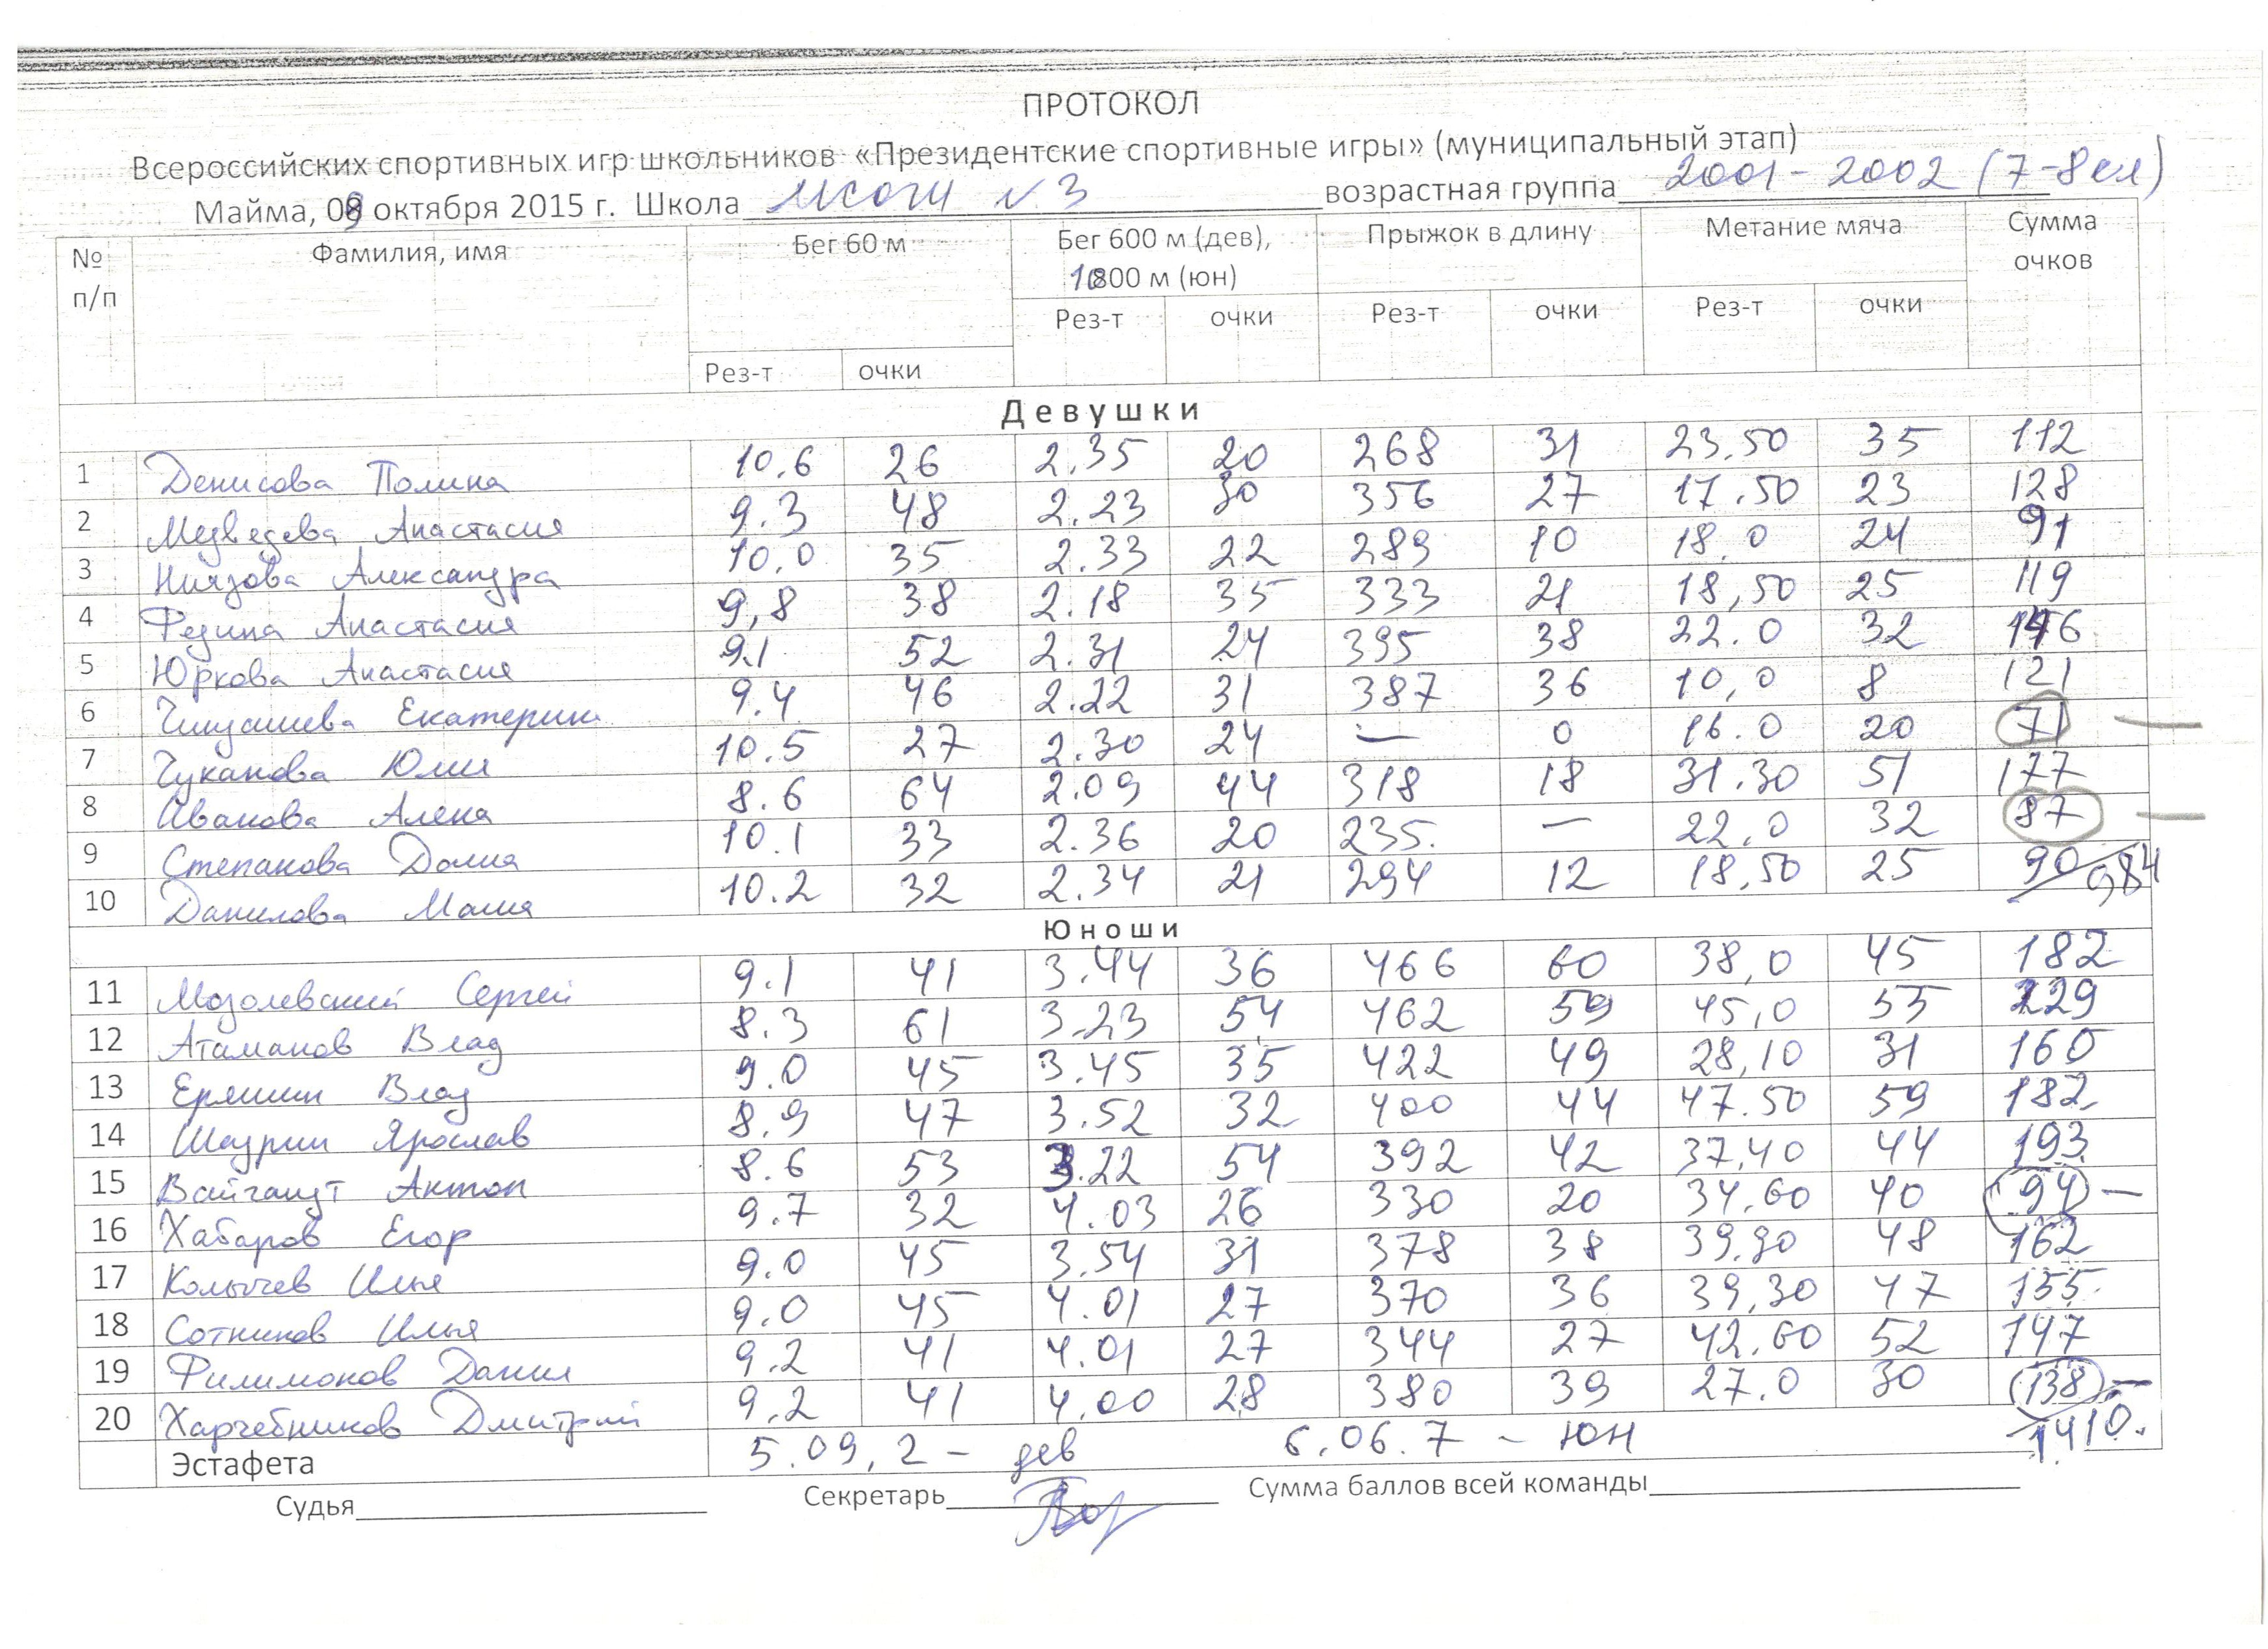 ПРОТОКОЛ
Всероссийских спортивных игр школьников «Президентские спортивные игры» (муниципальный этап)
Майма, 09 октября 2015 г. Школа МСОШ №3 возрастная группа 2001-2002 (7-8 кл)
№ п/п Фамилия, имя Бег 60 м Бег 600 м (дев), 1000 м (юн) Прыжок в длину Метание мяча Сумма очков
Рез-т очки Рез-т очки Рез-т очки Рез-т очки
Девушки
1 Денисова Полина 10.6 26 2.35 20 268 31 23,50 35 112
2 Медведева Анастасия 9.3 48 2.23 30 356 27 17.50 23 128
3 Ниязова Александра 10,0 35 2.33 22 289 10 18.0 24 91
4 Федина Анастасия 9,8 38 2.18 35 333 21 18,50 25 119
5 Юркова Анастасия 9.1 52 2.31 24 395 38 22.0 32 146
6 Екатерина 9.4 46 2.22 31 387 36 10,0 8 121
7 Чуканова Юлия 10.5 27 2.30 24 — 0 16.0 20 71 —
8 Иванова Алена 8.6 64 2.09 44 318 18 31.30 51 177
9 Степанова 10.1 33 2.36 20 235. — 22,0 32 87 —
10 Данилова Маша 10.2 32 2.34 21 294 12 18,50 25 90 984
Юноши
11 Мозолевский Сергей 9.1 41 3.44 36 466 60 38,0 45 182
12 Атаманов Влад 8.3 61 3.23 54 462 59 45,0 55 229
13 Еряшин Влад 9.0 45 3.45 35 422 49 28,10 31 160
14 Шадрин Ярослав 8.9 47 3.52 32 400 44 47.50 59 182
15 Вайгандт Антон 8.6 53 3.22 54 392 42 37,40 44 193
16 Хабаров Егор 9.7 32 4.03 26 330 20 34,60 40 94 —
17 Колычев Илья 9.0 45 3.54 31 378 38 39,90 48 162
18 Сотников Илья 9.0 45 4.01 27 370 36 39,30 47 155
19 Филимонов Данил 9.2 41 4.01 27 344 27 42,60 52 147
20 Харчебников Дмитрий 9.2 41 4.00 28 380 39 27.0 30 138 —
Эстафета 5.09,2 - дев 6.06.7 - юн 1410.
Судья Секретарь Сумма баллов всей команды